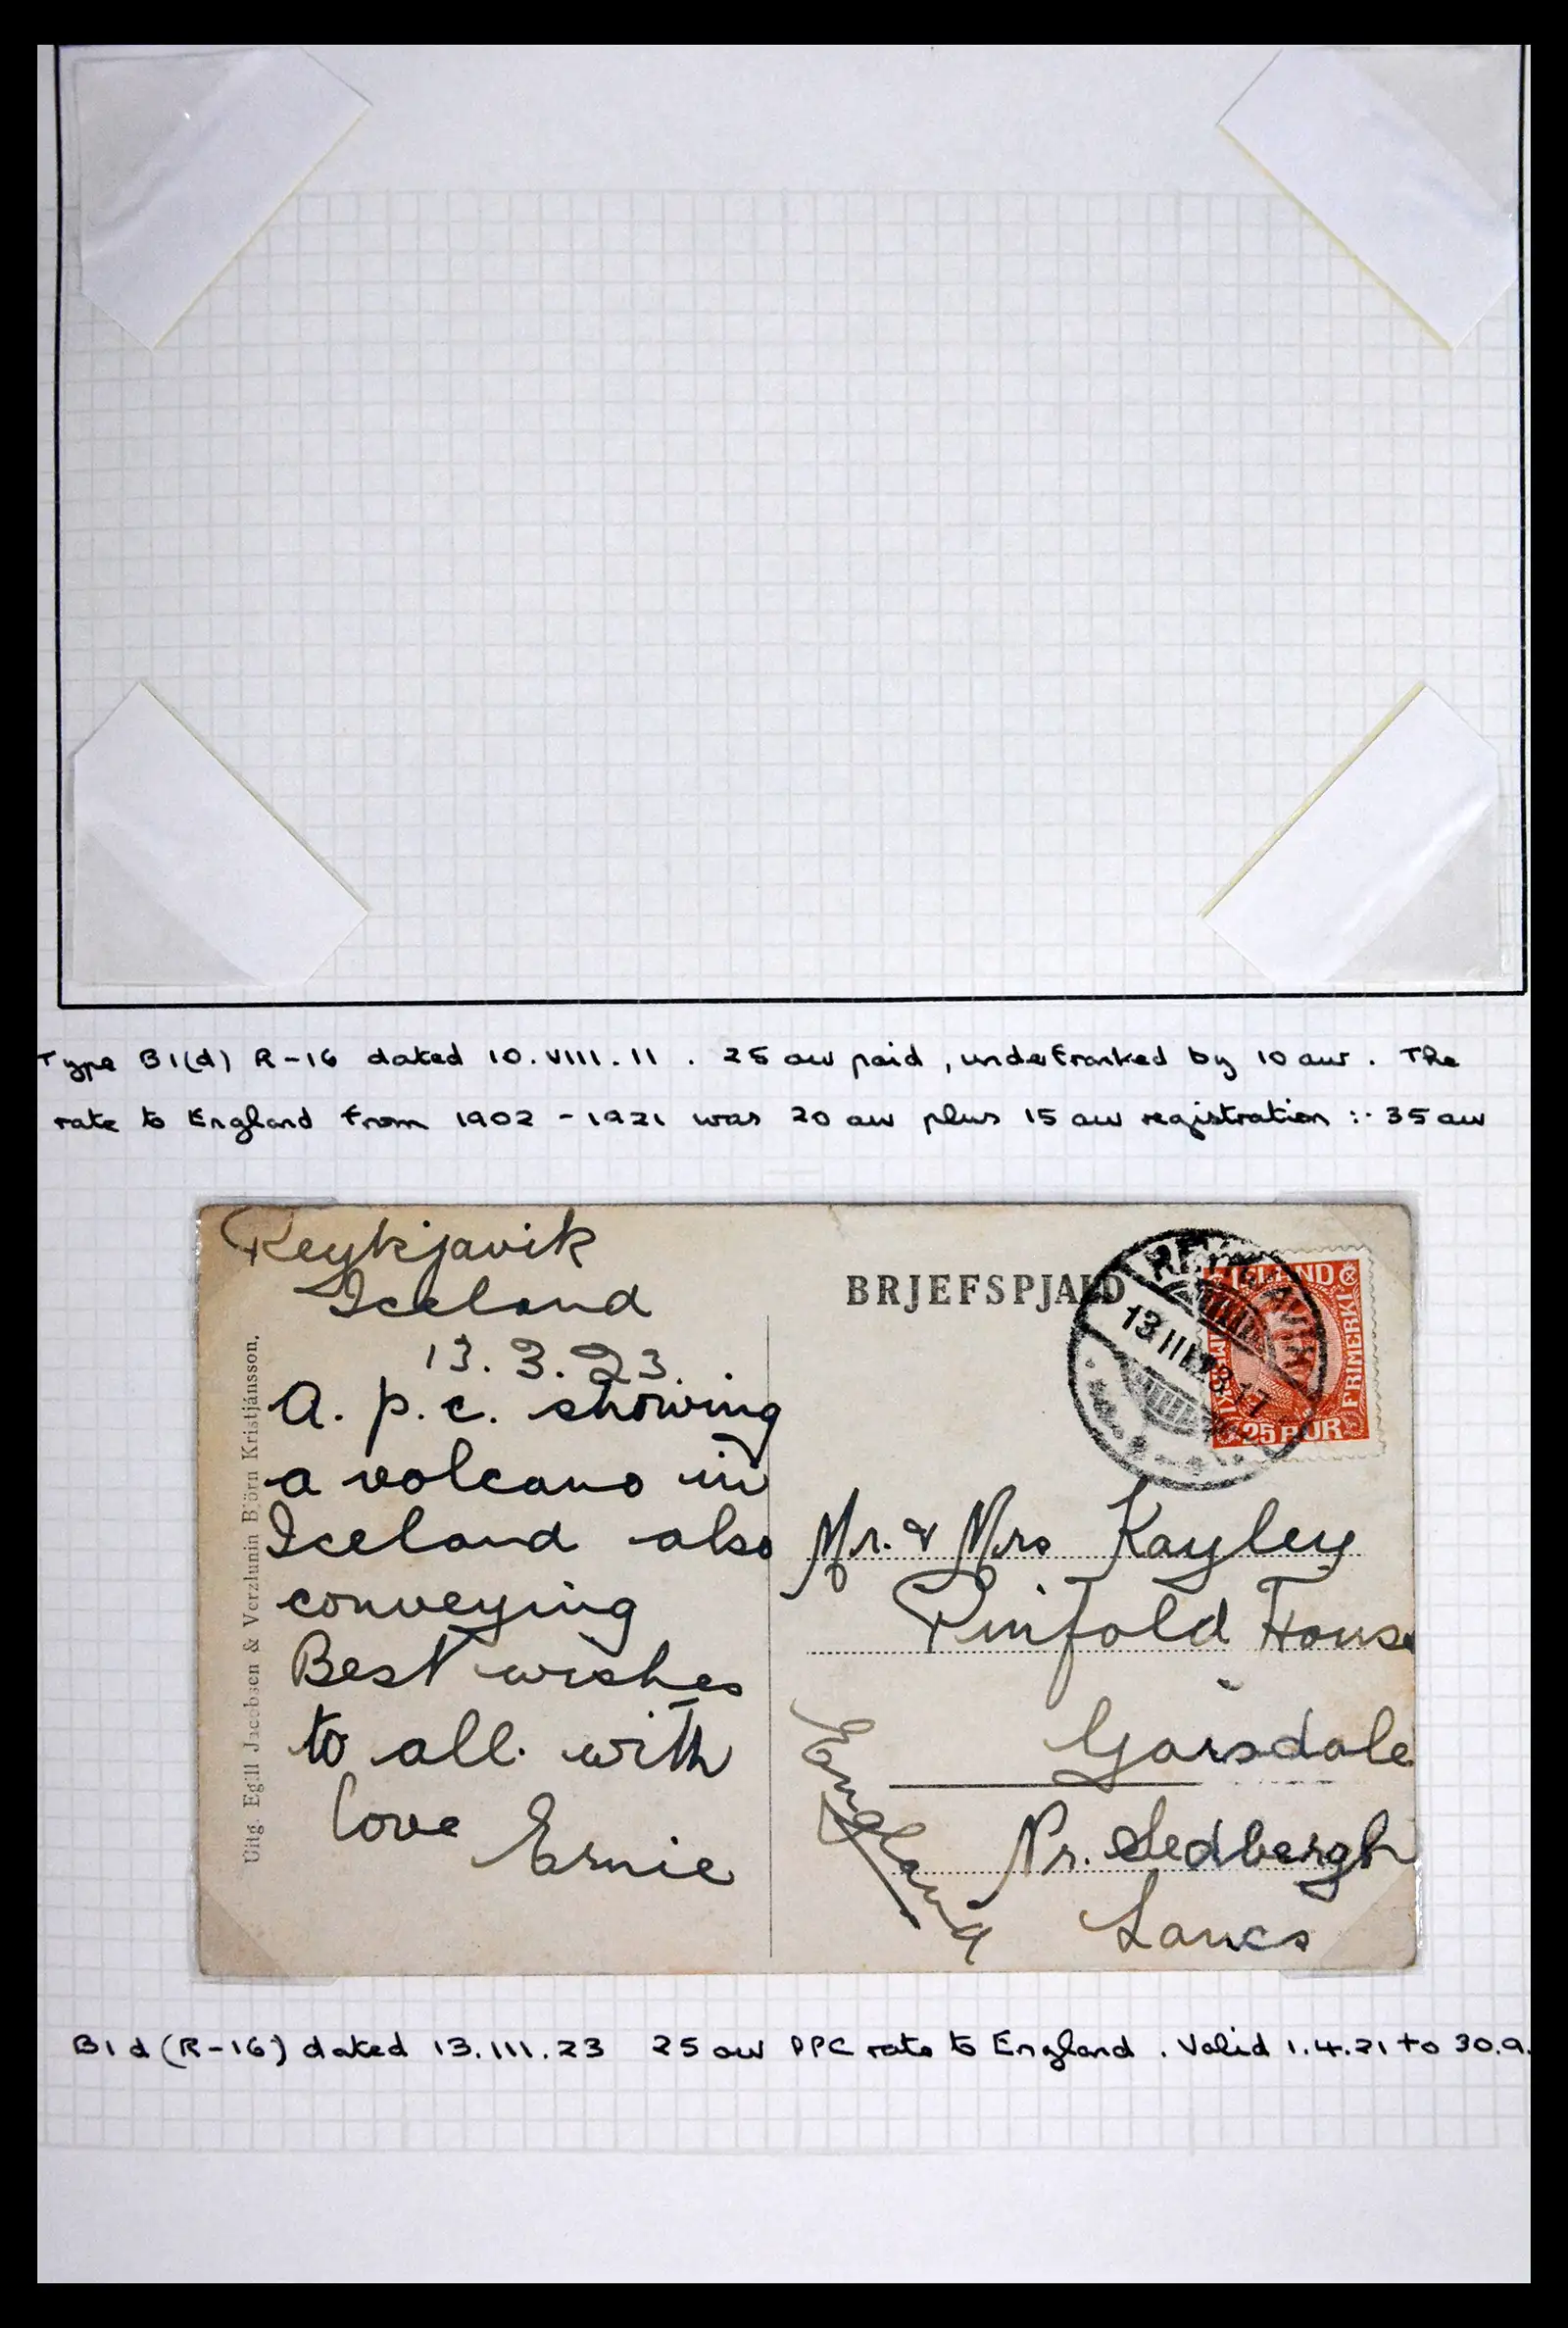 Type B1(d) R-16 dated 10.VIII.11. 25 aur paid, underfranked by 10 aur. The
rate to England from 1902 - 1921 was 20 aur plus 15 aur registration :- 35 aur
Reykjavik
Iceland
13.3.23.
A. p.c. showing
a volcano in
Iceland also
conveying
Best wishes
to all. with
love Ernie
Uitg. Egill Jacobsen & Verzlunin Björn Kristjánsson.
BRJEFSPJALD
REYKJAVIK
13 III
17
ISLAND
FRIMERKI
25 AUR
Mr. & Mrs Kayley
Pinfold House
Garsdale
Nr. Sedbergh
Lancs
England
B1d (R-16) dated 13.III.23 25 aur PPC rate to England. Valid 1.4.21 to 30.9.